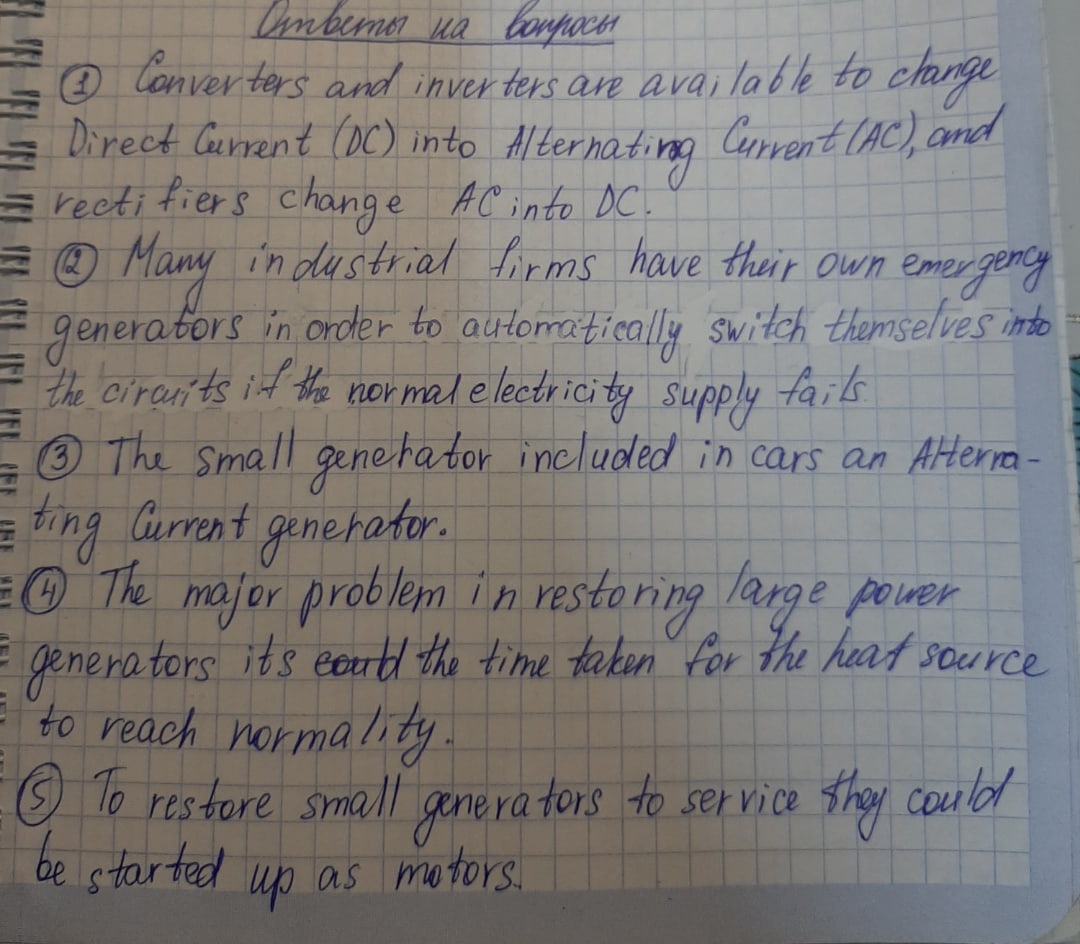 Ответы на вопросы
① Converters and inverters are available to change
Direct Current (DC) into Alternating Current (AC), and
rectifiers change AC into DC.
② Many industrial firms have their own emergency
generators in order to automatically switch themselves into
the circuits if the normal electricity supply fails.
③ The small generator included in cars an Alterna-
ting Current generator.
④ The major problem in restoring large power
generators its the time taken for the heat source
to reach normality.
⑤ To restore small generators to service they could
be started up as motors.